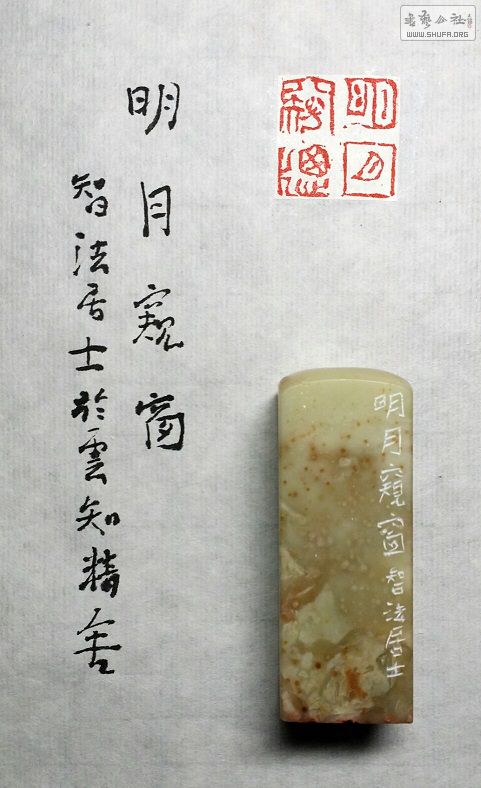 書藝公社
WWW.SHUFA.ORG
明月
窺窗
明月窺窗
智法居士於雲知精舍
明月窺窗智法居士